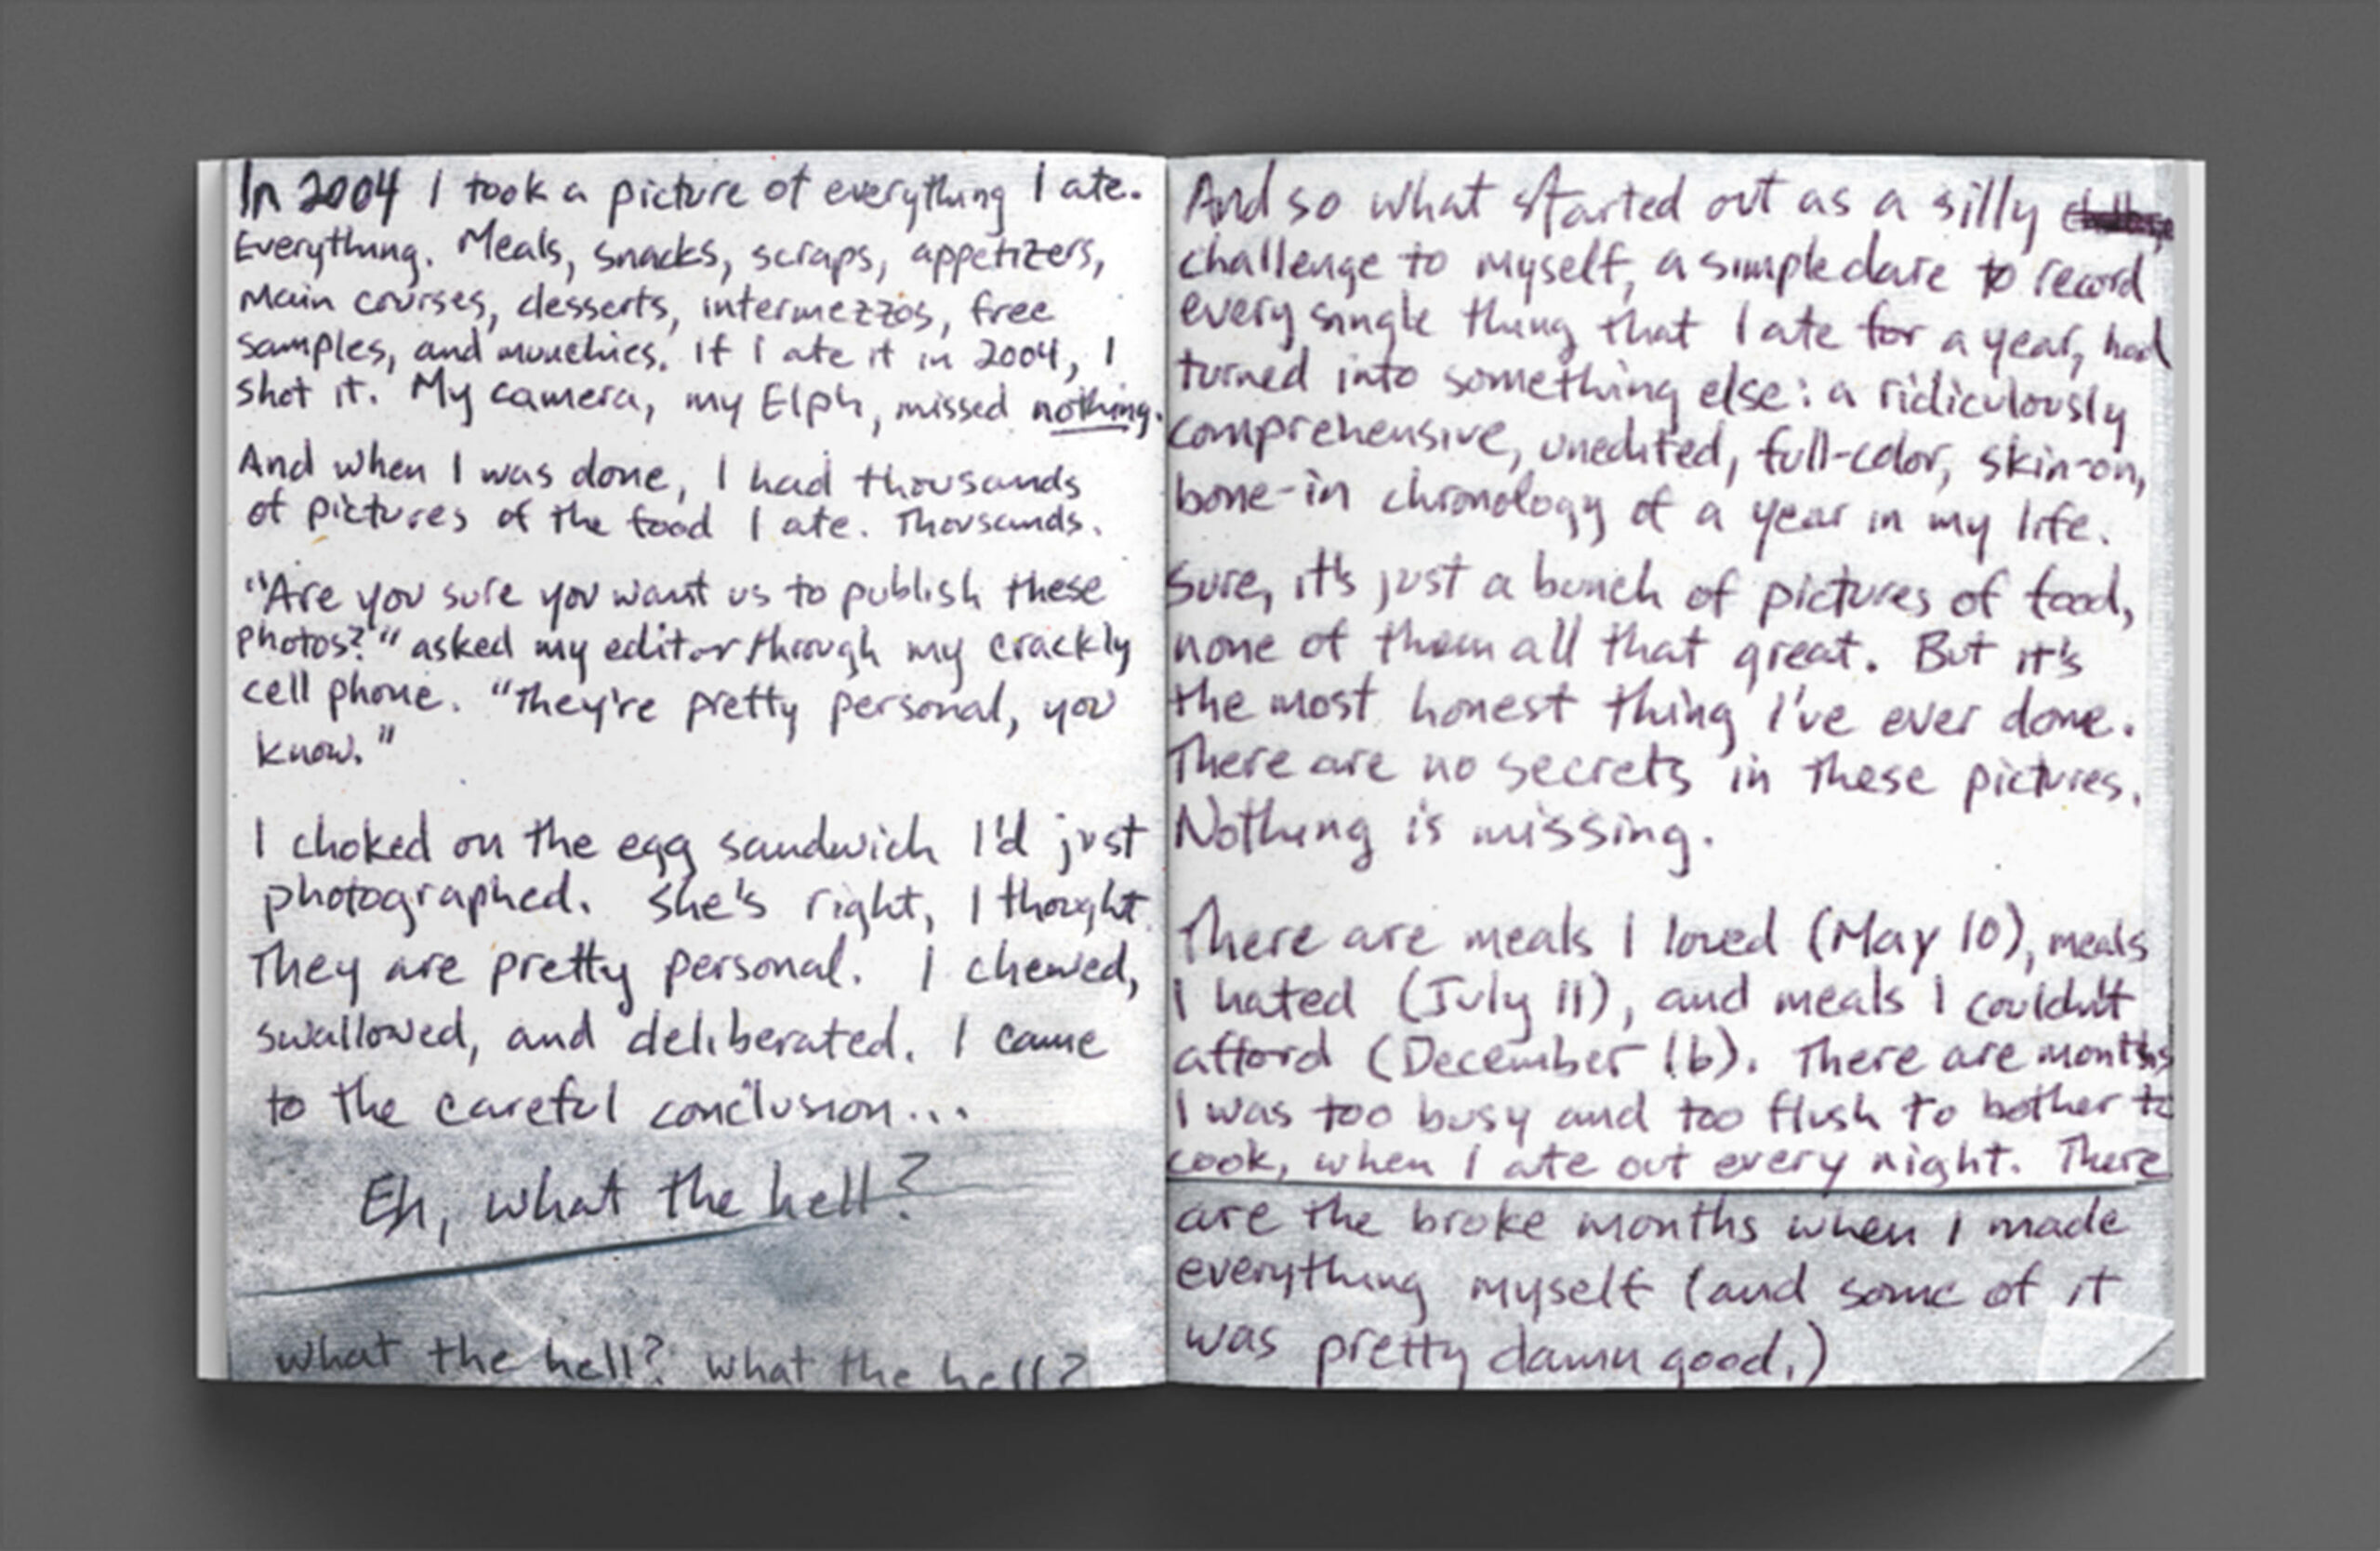 In 2004 I took a picture of everything I ate.
Everything. Meals, snacks, scraps, appetizers,
main courses, desserts, intermezzos, free
samples, and munchies. If I ate it in 2004, I
shot it. My camera, my Elph, missed nothing.
And when I was done, I had thousands
of pictures of the food I ate. Thousands.
"Are you sure you want us to publish these
photos?" asked my editor through my crackly
cell phone. "They're pretty personal, you
know."
I choked on the egg sandwich I'd just
photographed. She's right, I thought.
They are pretty personal. I chewed,
swallowed, and deliberated. I came
to the careful conclusion...
Eh, what the hell?
what the hell? what the hell?
And so what started out as a silly
challenge to myself, a simple dare to record
every single thing that I ate for a year, had
turned into something else: a ridiculously
comprehensive, unedited, full-color, skin-on,
bone-in chronology of a year in my life.
Sure, it's just a bunch of pictures of food,
none of them all that great. But it's
the most honest thing I've ever done.
There are no secrets in these pictures.
Nothing is missing.
There are meals I loved (May 10), meals
I hated (July 11), and meals I couldn't
afford (December 16). There are months
I was too busy and too flush to bother to
cook, when I ate out every night. There
are the broke months when I made
everything myself (and some of it
was pretty damn good.)